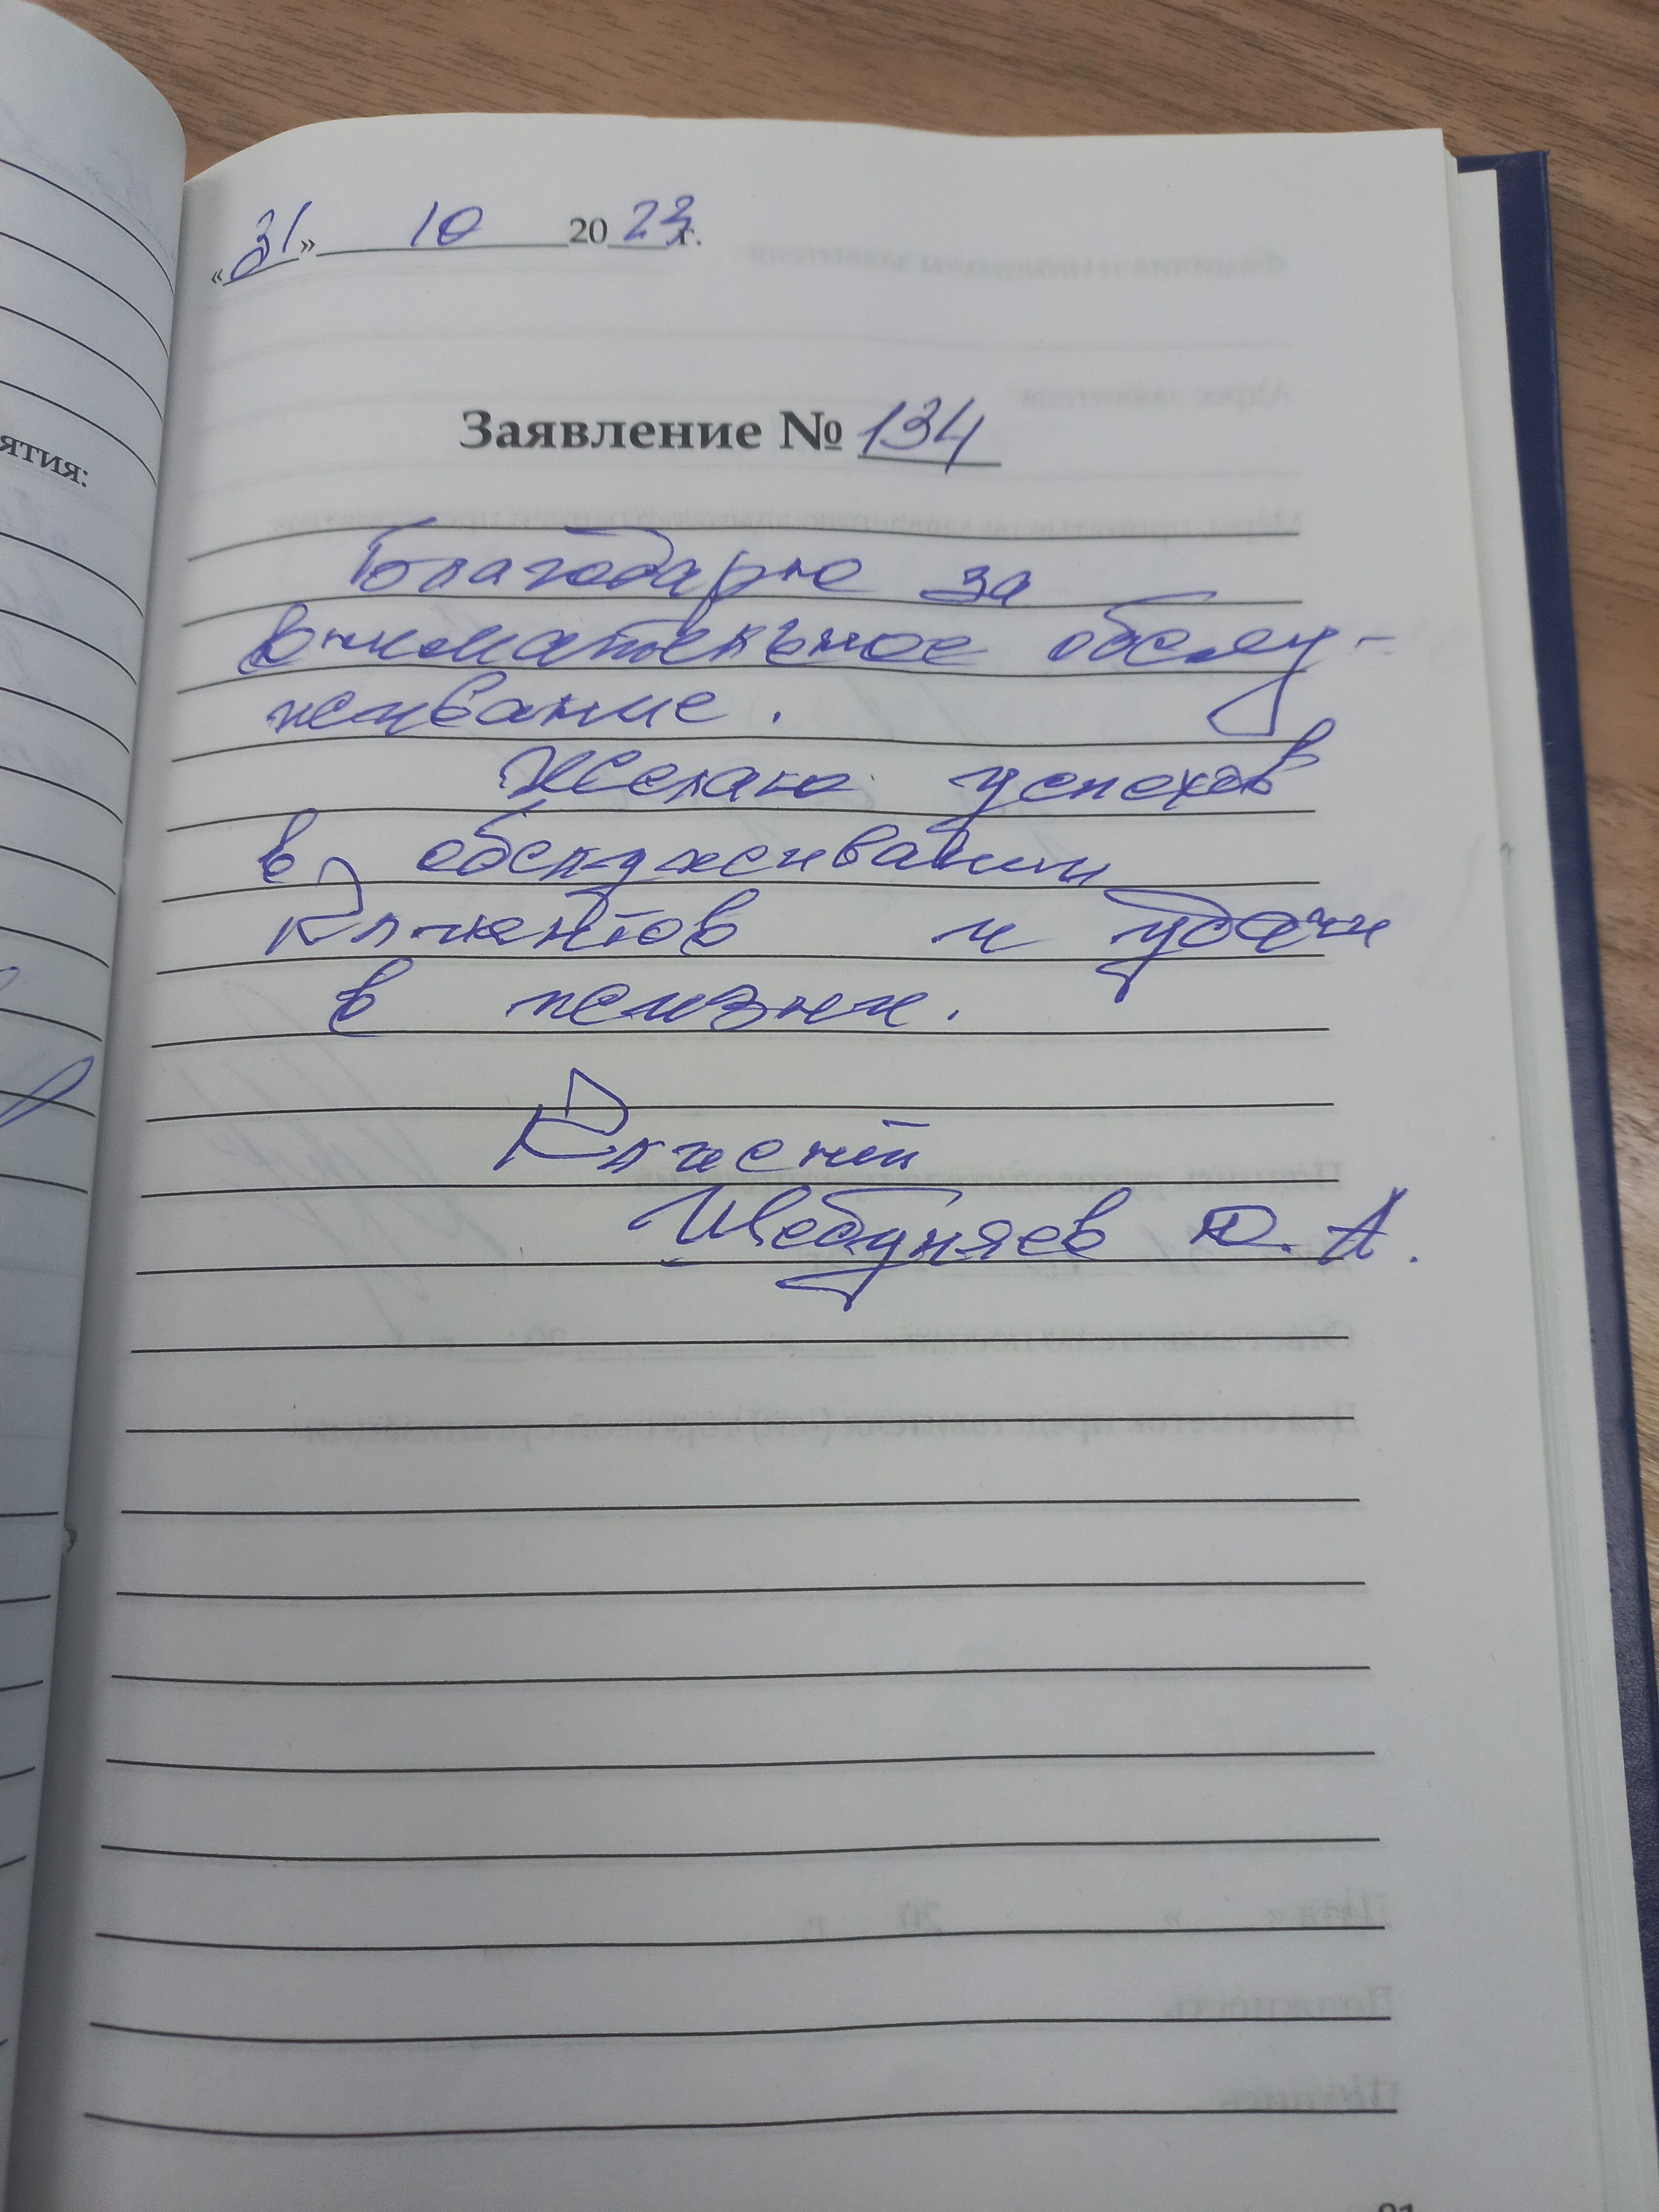 «31» 10 2023 г.
ятия:
Заявление № 134
Благодарю за
внимательное обслу-
живание.
Желаю успехов
в обслуживании
Клиентов и удачи
в жизни.
Клиент
Шебуняев Ю. А.